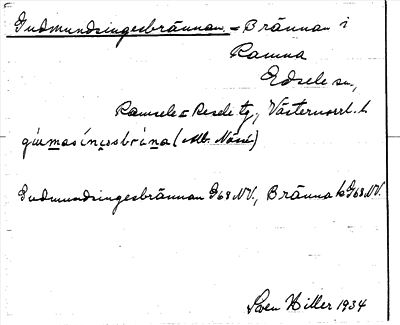 Gudmundsingesbrännan = Brännan i
Ramna
Edsele sn,
Ramsele o Resele tg, Västernorrl. l.
(Mb. Näsni)
Gudmundsingesbrännan G68NV., Bränna b G68NV.
Sven Hiller 1934